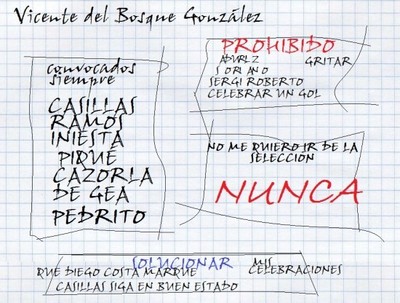 Vicente del Bosque González
convocados
siempre
CASILLAS
RAMOS
INIESTA
PIQUÉ
CAZORLA
DE GEA
PEDRITO
PROHIBIDO
ADURIZ GRITAR
SORIANO
SERGI ROBERTO
CELEBRAR UN GOL
NO ME QUIERO IR DE LA
SELECCIÓN
NUNCA
SOLUCIONAR
QUE DIEGO COSTA MARQUE
CASILLAS SIGA EN BUEN ESTADO
MIS
CELEBRACIONES